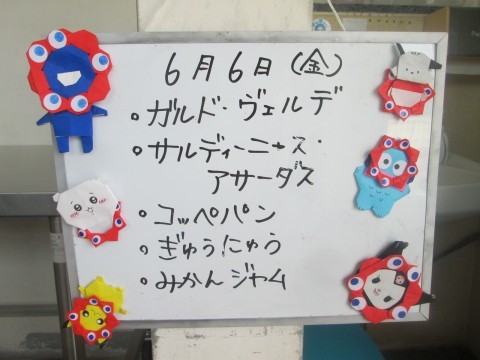 6月6日(金)
・ガルド・ヴェルデ
・サルディーニャス・
アサーダス
・コッペパン
・ぎゅうにゅう
・みかんジャム